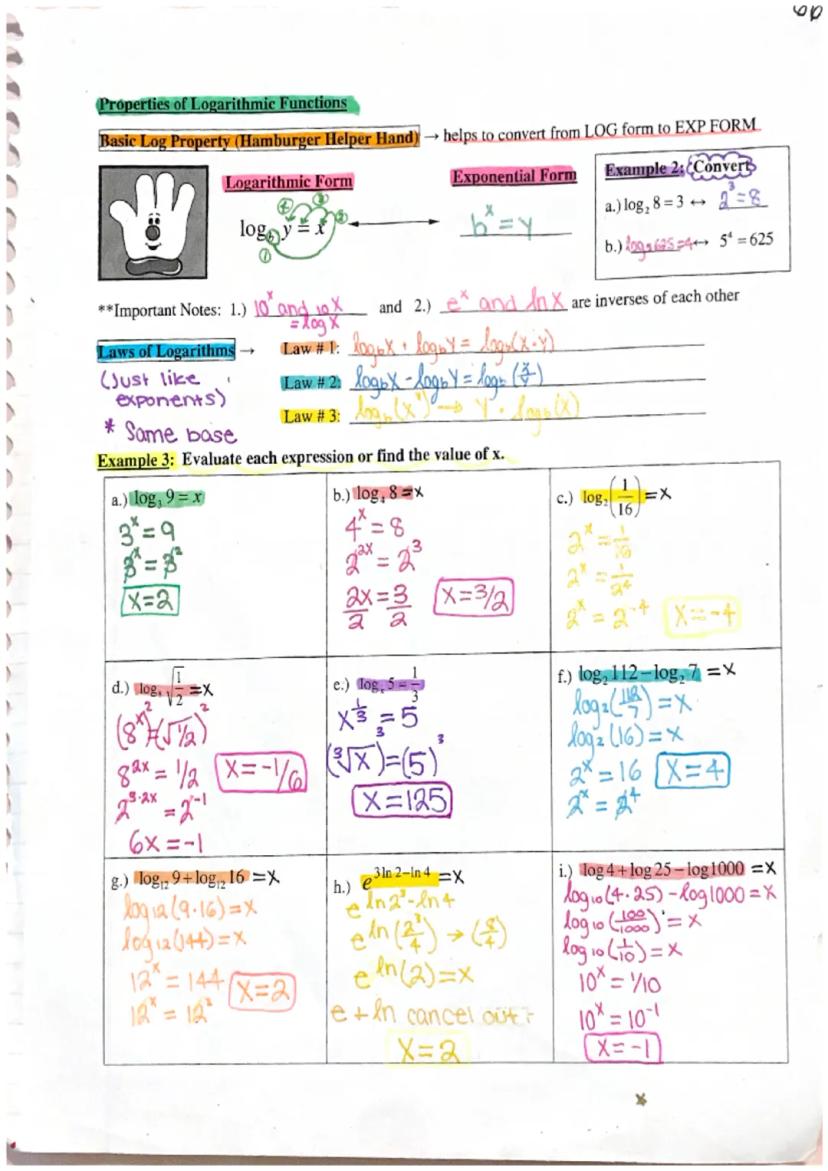 60
Properties of Logarithmic Functions
Basic Log Property (Hamburger Helper Hand) → helps to convert from LOG form to EXP FORM
Logarithmic Form
Exponential Form
Example 2: Convert
log_b y = x ↔ b^x = y
① ② ③ ④
a.) log₂ 8 = 3 ↔ 2³ = 8
b.) log₅ 625 = 4 ↔ 5⁴ = 625
**Important Notes: 1.) 10^x and 10X = log X and 2.) e^x and ln X are inverses of each other
Laws of Logarithms →
(Just like exponents)
* Same base
Law # 1: log_b X + log_b Y = log_b (X·Y)
Law # 2: log_b X - log_b Y = log_b (X/Y)
Law # 3: log_b (X^Y) → Y · log_b (X)
Example 3: Evaluate each expression or find the value of x.
a.) log₃ 9 = x
3^x = 9
3^x = 3²
x=2
b.) log₄ 8 = x
4^x = 8
2^2x = 2³
2x/2 = 3/2
x=3/2
c.) log₂ (1/16) = x
2^x = 1/16
2^x = 1/2⁴
2^x = 2^-4
x=-4
d.) log₈ √(1/2) = x
(8^x)² = (√1/2)²
8^2x = 1/2
x=-1/6
2^3·2x = 2^-1
6x = -1
e.) log_x 5 = 1/3
x^1/3 = 5
(³√x)³ = (5)³
x=125
f.) log₂ 112 – log₂ 7 = x
log₂ (112/7) = x
log₂ (16) = x
2^x = 16
x=4
2^x = 2⁴
g.) log₁₂ 9 + log₁₂ 16 = x
log12 (9·16) = x
log12 (144) = x
12^x = 144
x=2
12^x = 12²
h.) e^(3 ln 2 – ln 4) = x
e ln 2³ - ln 4
e ln (2³/4) → (8/4)
e ln (2) = x
e + ln cancel out
x=2
i.) log 4 + log 25 – log 1000 = x
log10 (4·25) - log 1000 = x
log10 (100/1000) = x
log10 (1/10) = x
10^x = 1/10
10^x = 10^-1
x=-1